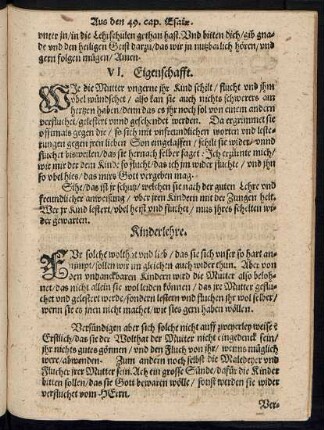 Aus den 49. cap. Esaiæ.
unter jn/in die Lehrschulen gethan hast. Und bitten dich/gib gna-
de und den heiligen Geist darzu/das wir in nutzbarlich hören/und
gern folgen mügen/Amen.
VI. Eigenschafft.
WIe die Mutter ungerne ihr Kind schilt/flucht und ihm
ubel wündschet/also kan sie auch nichts schwerers am
hertzen haben/denn das es ihr noch sol von einem andern
verfluchet/gelestert und geschendet werden. Da ergrimmet sie
offtmals gegen die/so sich mit unfreundlichen worten und leste-
rungen gegen jren lieben Son einlassen/schilt sie wider/und
fluchet bisweilen/das sie hernach selber saget: Ich erzürnte mich/
wie mir der dem Kinde so flucht/das ich jm wider fluchte/und ihm
so ubel hies/das mirs Gott vergeben mag.
Sihe/das ist jr schutz/welchen sie nach der guten Lehre und
freundlicher anweisung/uber jren Kindern mit der Zungen helt.
Wer jr Kind lestert/ubel heist und fluchet/mus jhres scheltens wi-
der gewarten.
Kinderlehre.
FUr solche wolthat und lieb/das sie sich unser so hart an-
nimpt/sollen wir jm gleich et auch wider thun. Aber von
den undanckbaren Kindern wird die Mutter also beloh-
net/das nicht allein sie wol leiden können/das jre Mutter geflu-
chet und gelestert werde/sondern lestern und fluchen ihr wol selber/
wenn sie es jnen nicht machet/wie sies gern haben wöllen.
Versündigen aber sich solche nicht auff zweyerley weise?
Erstlich/das sie der Wolthat der Mutter nicht eingedenck sein/
ihr nichts gutes gönnen/und den Fluch von ihr/wenns müglich
wer/abwenden. Zum andern noch selbst die Maledeyer und
Flucher jrer Mutter sein. Ach ein grosse Sünde/dafür die Kinder
bitten sollen/das sie Gott bewaren wölle/sonst werden sie wider
verfluchet vom HErrn.
Ver-